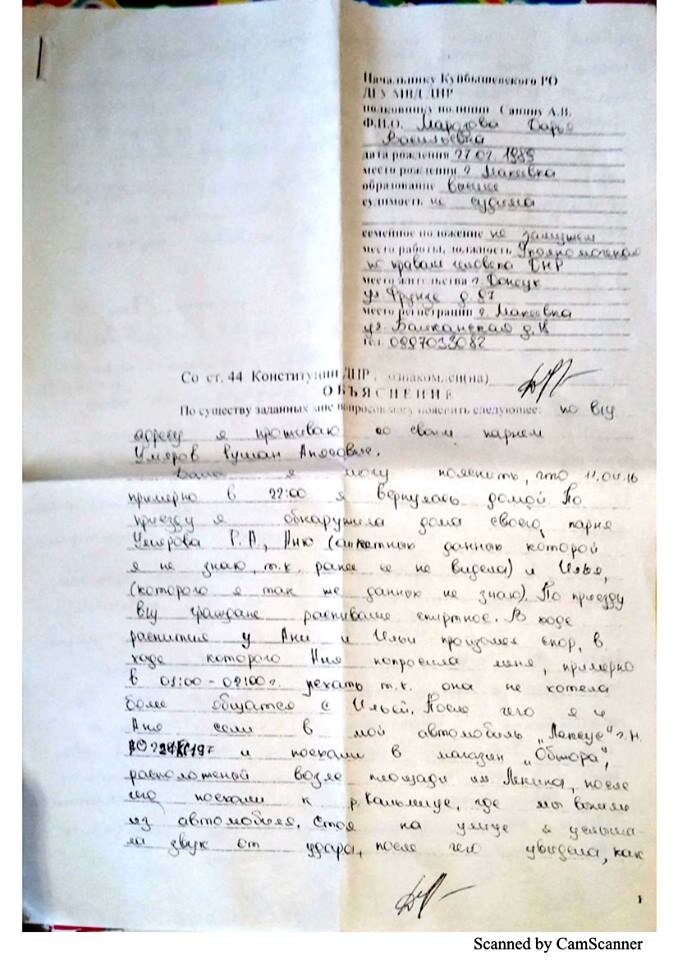 Начальнику Куйбышевского РО
ДГУ МВД ДНР
полковнику полиции
Ф.И.О. Дарья
Васильевна
дата рождения 1989
место рождения г. Макеевка
образование высшее
судимость не судима
семейное положение не замужем
место работы, должность
по правам человека ДНР
место жительства г. Донецк
ул Фрунзе д. 87
место регистрации г. Макеевка
ул. Балканская д.
тел 0997033082
Со ст. 44 Конституции ДНР ознакомлен(на)
ОБЪЯСНЕНИЕ
По существу заданных мне вопросов могу пояснить следующее: по в/у
адресу я проживаю со своим парнем
Умеров Руслан
я могу пояснить, что 11.04.16
примерно в 22:00 я вернулась домой. По
приезду я обнаружила дома своего парня
Умерова Р. А., Аню (анкетных данных которой
я не знаю, т.к. ранее ее не видела) и Илью,
(которого я так же данных не знаю). По приезду
в/у граждане распивали спиртное. В ходе
распития у Ани и Ильи произошел спор, в
ходе которого Аня попросила меня, примерно
в 01:00 - 02:00 уехать т.к. она не хотела
более общатся с Ильей. После чего я и
Аня сели в мой автомобиль г.н.
и поехали в магазин "Обжора",
расположеный возле площади им Ленина, после
чего поехали к р. Кальмиус, где мы вышли
из автомобиля. Стоя на улице я услыша-
ла звук от удара, после чего увидела, как
Scanned by CamScanner